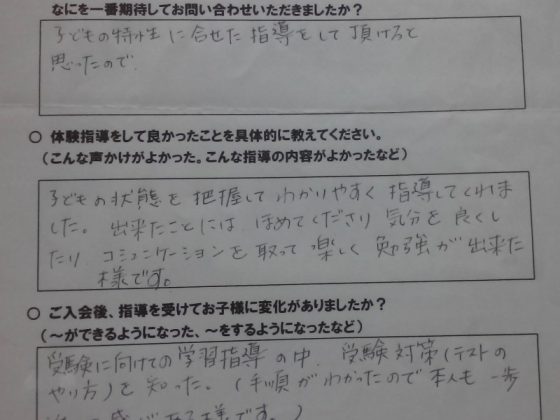 なにを一番期待してお問い合わせいただきましたか？
子どもの特性に合せた指導をして頂けると
思ったので.
○ 体験指導をして良かったことを具体的に教えてください。
（こんな声かけがよかった。こんな指導の内容がよかったなど）
子どもの状態を把握してわかりやすく指導してくれま
した。出来たことにはほめてくださり気分を良くし
たり、コミュニケーションを取って楽しく勉強が出来た
様です。
○ ご入会後、指導を受けてお子様に変化がありましたか？
（～ができるようになった、～をするようになったなど）
受験に向けての学習指導の中、受験対策（テストの
やり方）を知った。（手順がわかったので本人も一歩
感がある様です。）